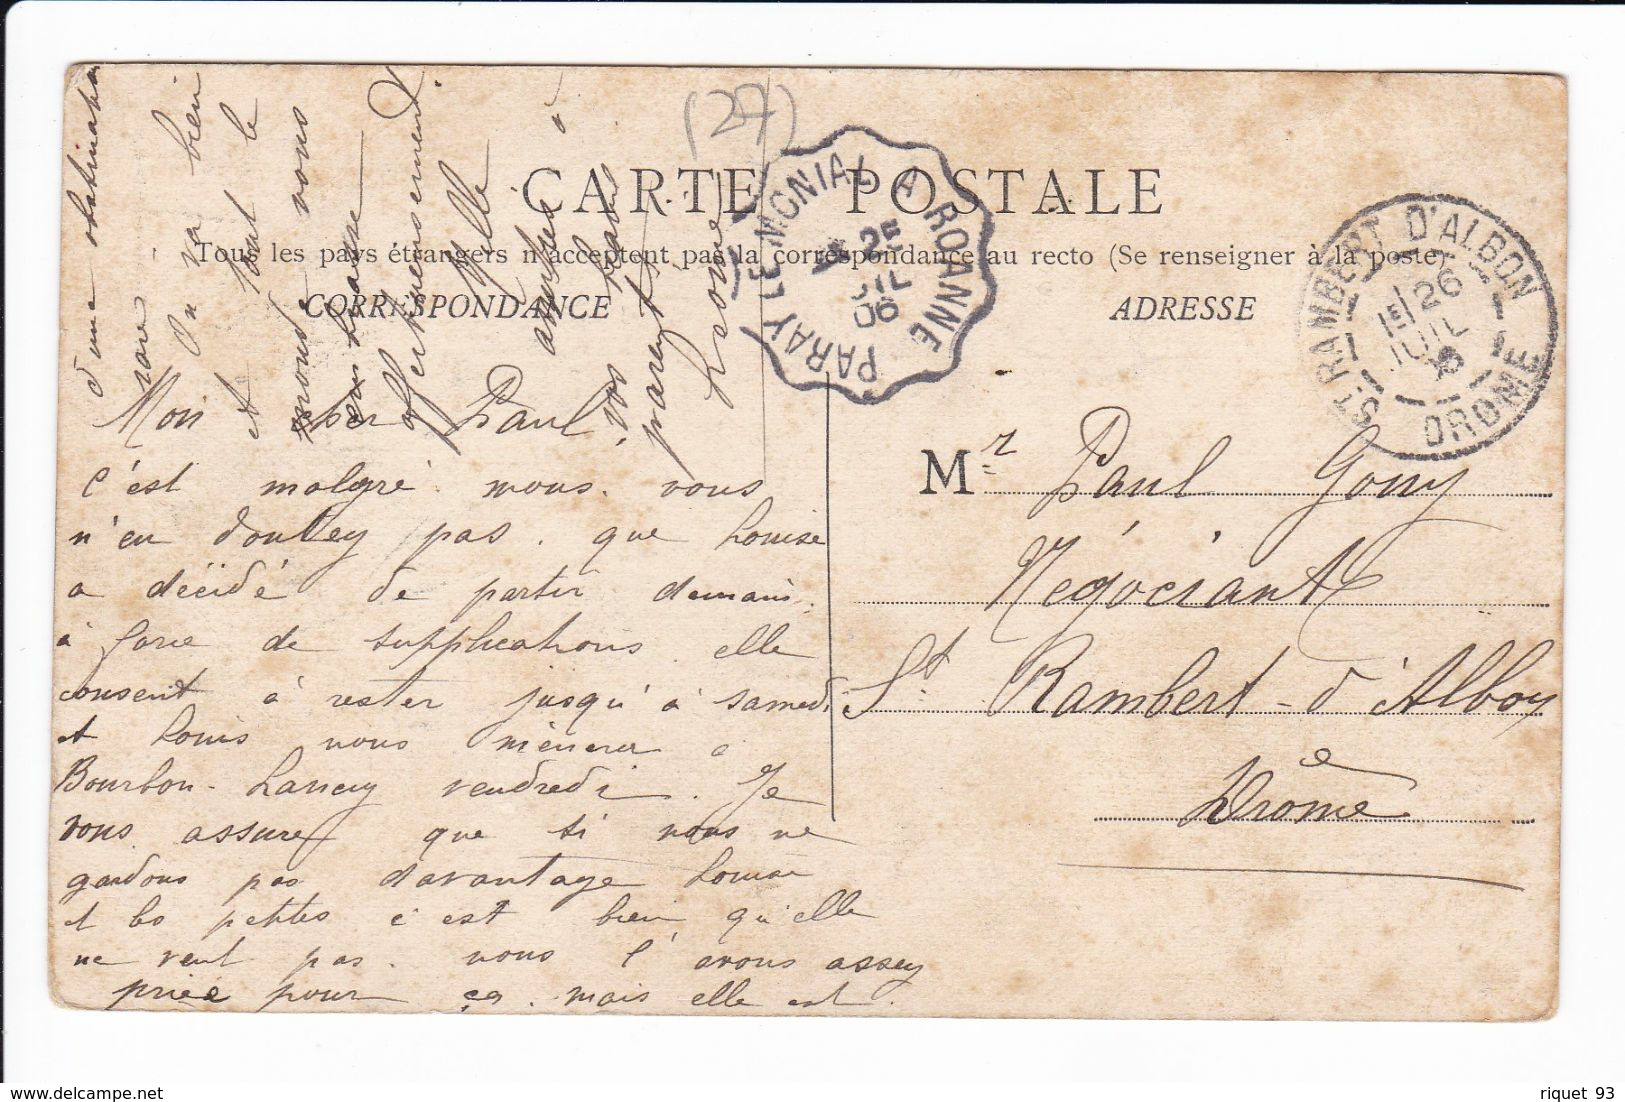 (27)
CARTE POSTALE
Tous les pays étrangers n'acceptent pas la correspondance au recto (Se renseigner à la poste)
CORRESPONDANCE
ADRESSE
PARAY LE MONIAL A ROANNE
25
JIL
06
ST RAMBERT D'ALBON
26
JUIL
DROME
Mr Paul Gony
Négociant
St Rambert-d'Albon
Drôme
Mon cher Paul,
C'est malgré nous. vous
n'en doutez pas. que Louise
a décidé de partir demain.
à force de supplications elle
consent à rester jusqu'à samedi
et Louis nous mènera à
Bourbon-Lancy vendredi. Je
vous assure que si nous ne
gardons pas davantage Louise
et les petites c'est bien qu'elle
ne veut pas. nous l'avons assez
priée pour ça. mais elle est
d'une obstination
rare
On va bien
et tout le
monde vous
embrasse
affectueusement.
Mille
amitiés à
vos bons
parents